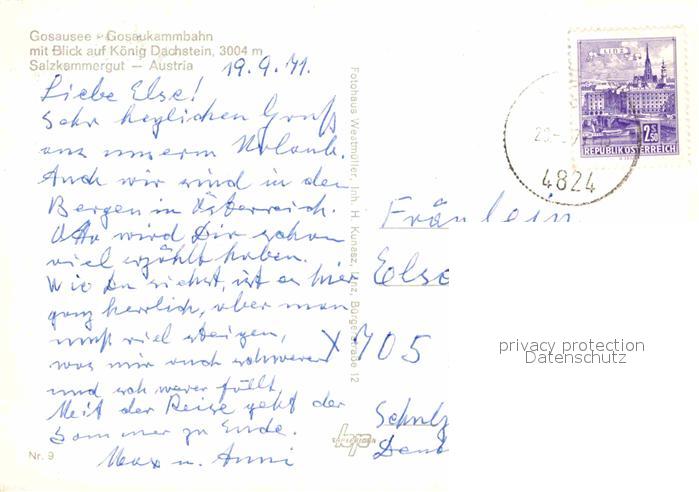 Gosausee - Gosaukammbahn
mit Blick auf König Dachstein, 3004 m
Salzkammergut — Austria
19.9.71.
Liebe Else!
Sehr herzlichen Gruß
aus unserm Urlaub.
Auch wir sind in den
Bergen in Österreich.
Otto wird Dir schon
viel erzählt haben.
Wie Du siehst, ist es hier
ganz herrlich, aber man
muß viel steigen,
was mir auch schwerer
und schwerer fällt.
Mit der Reise geht der
Sommer zu Ende.
Max u. Anni
Nr. 9
Fotohaus Westmüller, Inh. H. Kunasz, Linz, Bürgerstraße 12
LINZ
2.50
REPUBLIK ÖSTERREICH
4824
Fräulein
Else
X 705
privacy protection
Datenschutz